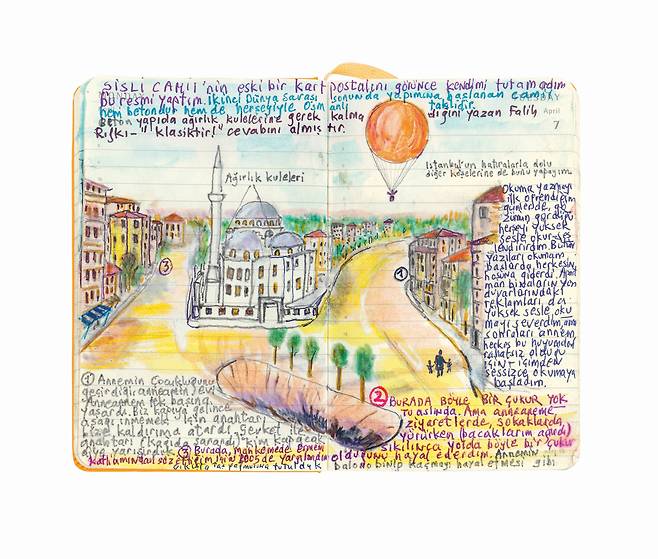 ŞİŞLİ CAMİİ'nin eski bir kart postalını görünce kendimi tutamadım
bu resmi yaptım. İkinci Dünya Savaşı sonunda yapımına başlanan camii
hem betondur hem de herşeyiyle Osmanlı taklidir.
Beton yapıda ağırlık kulelerine gerek kalmadığını yazan Falih
Rıfkı – "klasiktir!" cevabını almıştır.
April
7
Ağırlık kuleleri
İstanbul'un hatıralarla dolu
diğer köşelerine de bunu yapayım.
Okuma yazmayı
ilk öğrendiğim
günlerde, gö
zümün gördüğü
herşeyi yüksek
sesle okur ses
lendirirdim. Bütün
yazıları okumam
başlarda herkesin
hoşuna giderdi. Apart
man binaların yan
duvarlarındaki
reklamları da
yüksek sesle oku
mayı severdim, ama
sonraları annem,
herkes bu huyumdan
rahatsız olduğu
için içimden
sessizce okumaya
başladım.
3
1
1 Annemin çocukluğunu
geçirdiği anneannemin evi
Anneannem tek başına
yaşardı. Biz kapıya gelince
aşağı inmemek için anahtarı
bize kaldırıma atardı. Şevket ile
anahtarı (kağıda sarardı) kim kapacak
diye yarışırdık.
2 BURADA BÖYLE BİR ÇUKUR YOK
TU aslında. Ama anneanneme
ziyaretlerde, sokaklarda
yürürken (bacaklarım ağrırdı)
sıkılınca yolda böyle bir çukur
olduğunu hayal ederdim. Annemin
balona binip kaçmayı hayal etmesi gibi
3 Burada, mahkemede Ermeni
katliamından söz ettiğim için 2005'de yargılandım